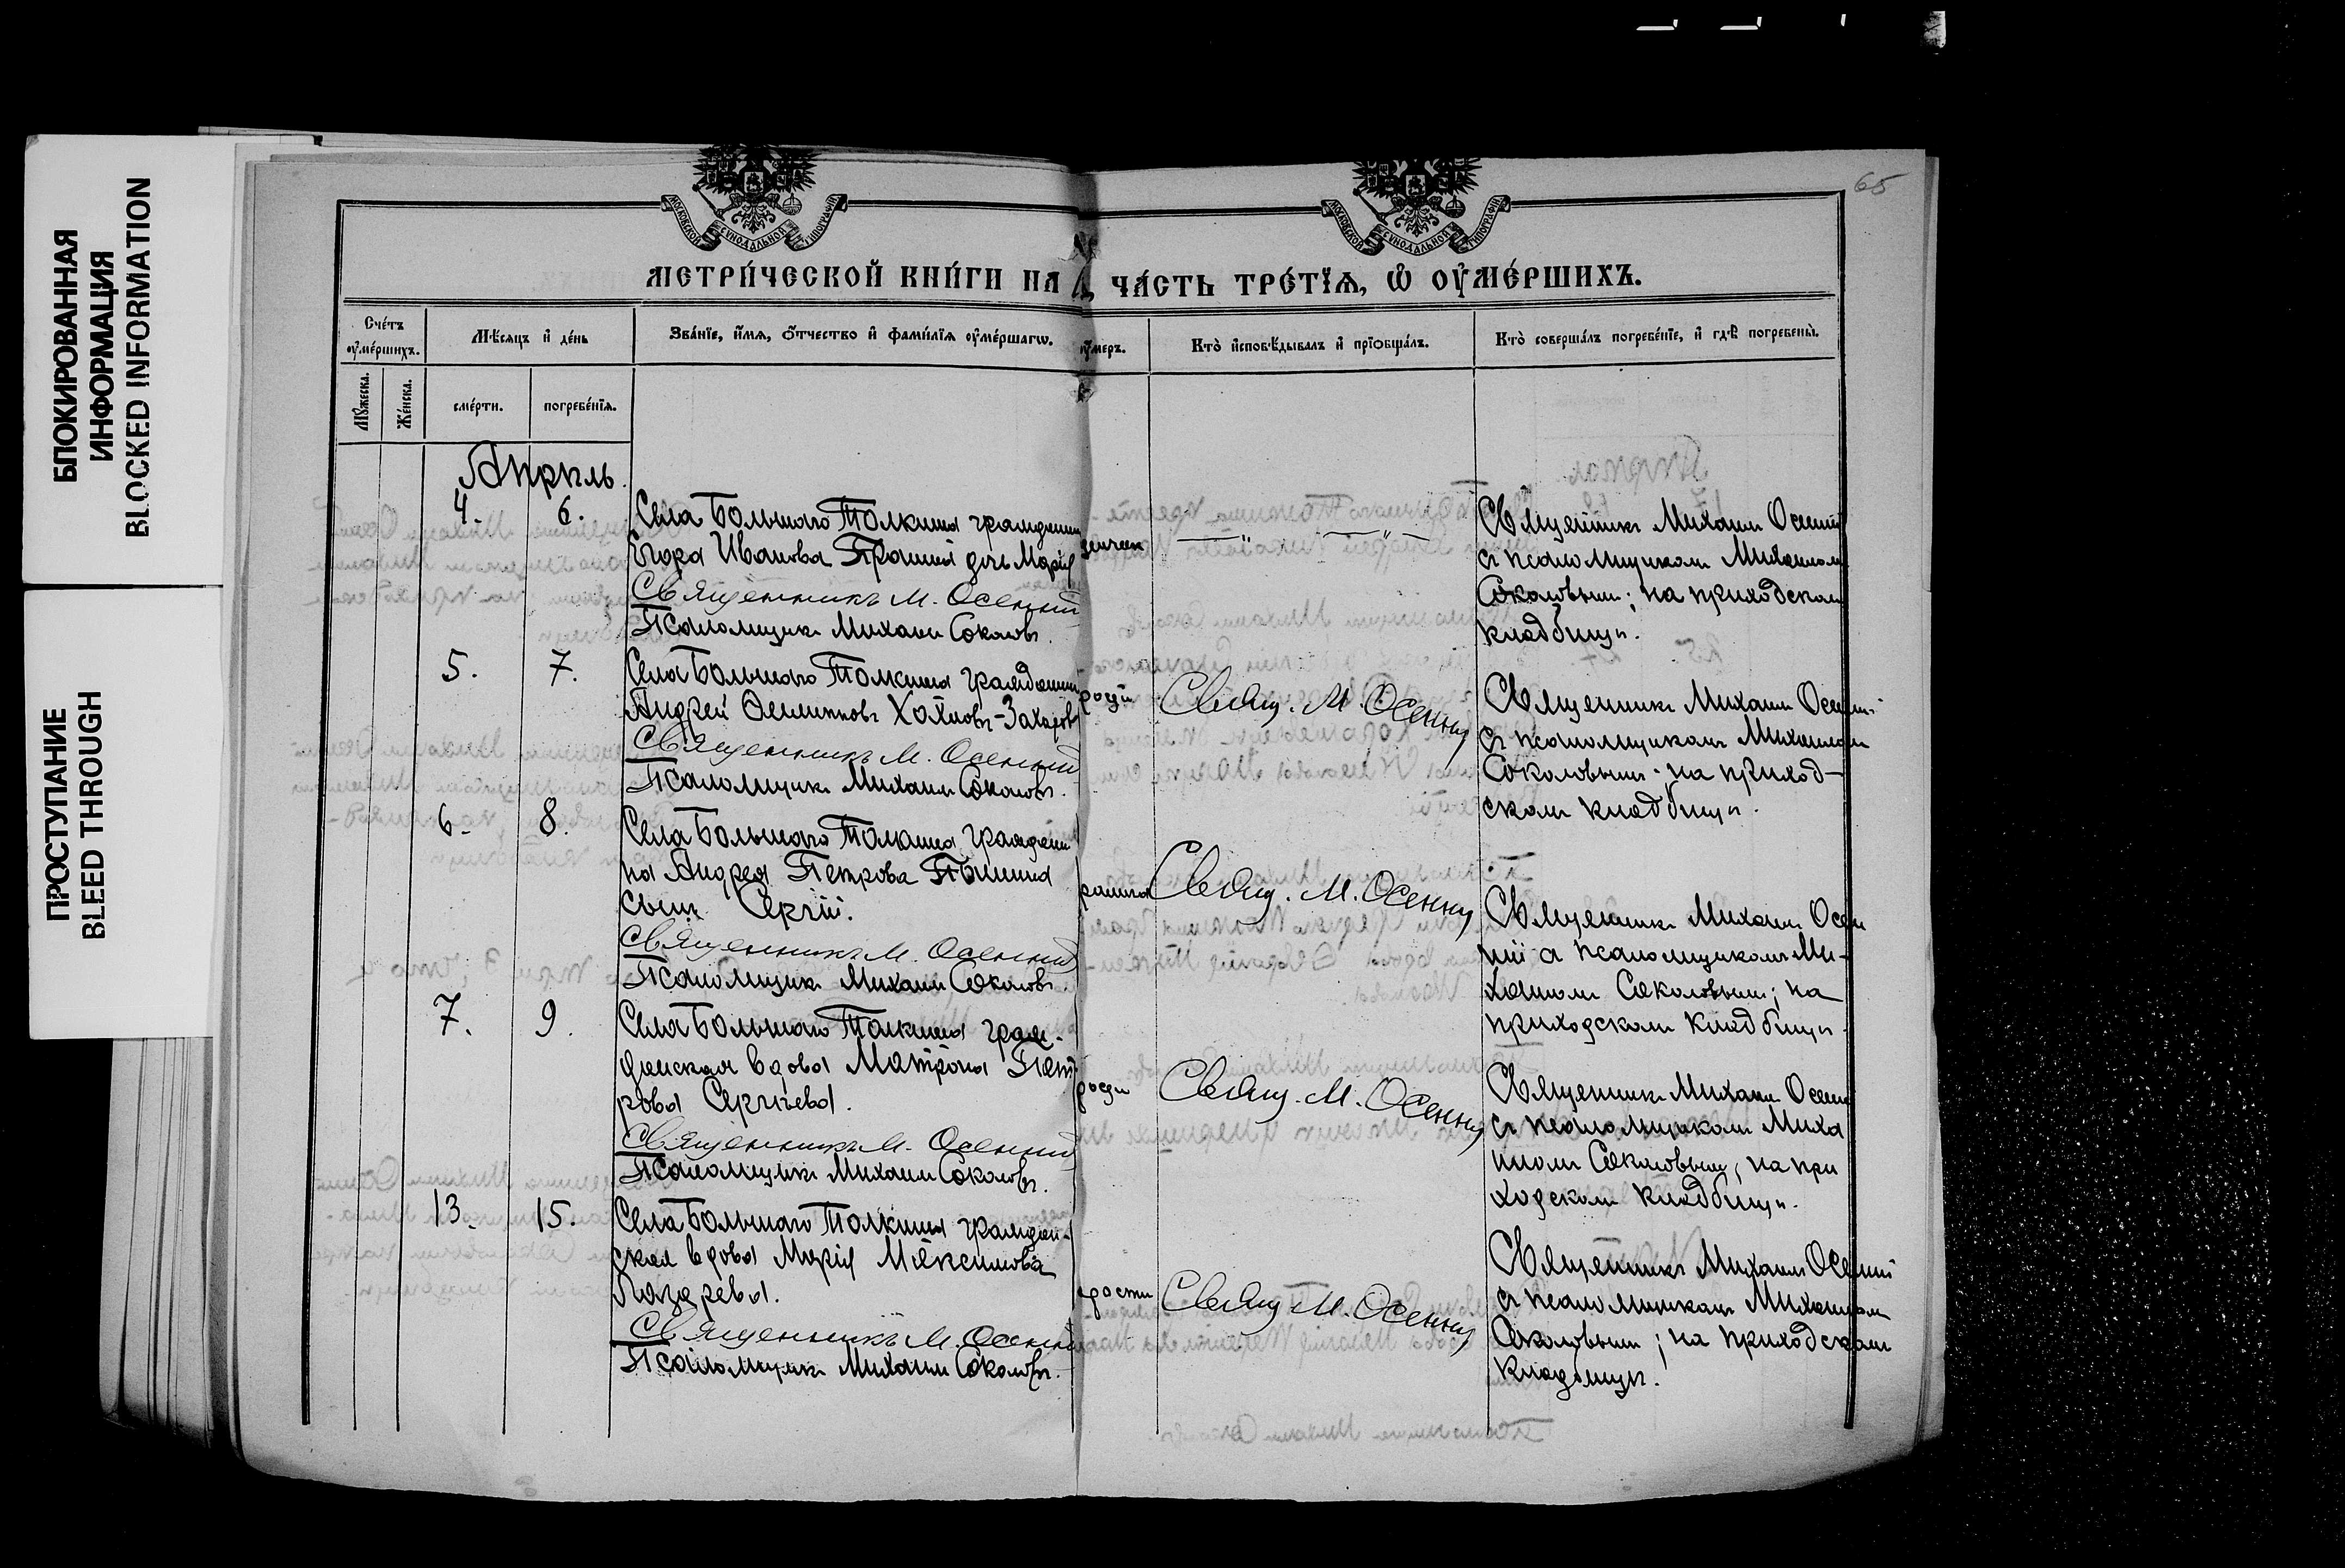 БЛОКИРОВАННАЯ
ИНФОРМАЦИЯ
BLOCKED INFORMATION
ПРОСТУПАНИЕ
BLEED THROUGH
65
МОСКОВСКОЙ СѴНОДАЛЬНОЙ ТИПОГРАФІИ
МОСКОВСКОЙ СѴНОДАЛЬНОЙ ТИПОГРАФІИ
МЕТРИ́ЧЕСКОЙ КНИ́ГИ НА
ЧА́СТЬ ТРЕ́ТЇѦ, Ѡ҆ ОУ҆МЕ́РШИХЪ.
Сче́тъ
оу҆ме́ршихъ.
Мѣ́сѧцъ и҆ де́нь
Зва́нїе, и҆́мѧ, ѻ҆́тчество и҆ фами́лїѧ оу҆ме́ршагѡ.
оу҆́меръ.
Кто̀ и҆сповѣ́дывалъ и҆ прїѡбща́лъ.
Кто̀ соверша́лъ погребе́нїе, и҆ гдѣ̀ погребены̀.
Мꙋ́жеска.
Же́нска.
сме́рти.
погребе́нїѧ.
Апрѣль.
4. 6.
Села Большаго Толкиша гражданин
Егора Иванова дочь Марія
Священникъ М. Осенній
Псаломщикъ Михаилъ Соколовъ.
Священникъ Михаилъ Осенній
съ псаломщикомъ Михаиломъ
Соколовымъ; на приходскомъ
кладбищѣ.
5. 7.
Села Большаго Толкиша гражданинъ
Андрей Хохловъ-Захаровъ
Священникъ М. Осенній
Псаломщикъ Михаилъ Соколовъ.
Свящ. М. Осенній
Священникъ Михаилъ Осенній
съ псаломщикомъ Михаиломъ
Соколовымъ на приход-
скомъ кладбищѣ.
6. 8.
Села Большаго Толкиша граждани
на Андрея Петрова
сынъ Сергій.
Священникъ М. Осенній
Псаломщикъ Михаилъ Соколовъ.
Свящ. М. Осенній
Священникъ Михаилъ Осен
ній съ псаломщикомъ Ми-
хаиломъ Соколовымъ; на
приходскомъ кладбищѣ.
7. 9.
Села Большаго Толкиша граж-
данская вдова Матрона Пет
рова Сергѣева.
Священникъ М. Осенній
Псаломщикъ Михаилъ Соколовъ.
Свящ. М. Осенній
Священникъ Михаилъ Осенн
съ псаломщикомъ Миха
иломъ Соколовымъ, на при
ходскомъ кладбищѣ.
13. 15.
Села Большаго Толкиша граждан-
ская вдова Марія Максимова
Лазарева.
Священникъ М. Осенній
Псаломщикъ Михаилъ Соколовъ.
Свящ М. Осенній
Священникъ Михаилъ Осенній
съ псаломщикомъ Михаиломъ
Соколовымъ; на приходскомъ
кладбищѣ.